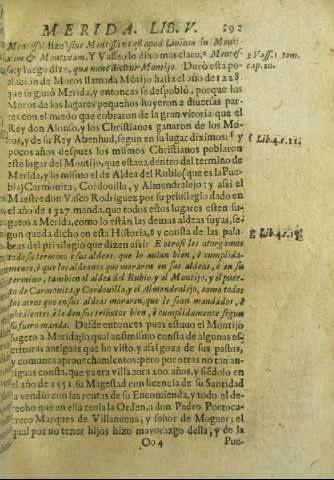 MERIDA. LIB. V. 292
(dize) siue Montissa est apud Lauinio in Monti-
xim & Montxam. Y Vaseo lo dixo mas claro, Mentes-
sa, y luego dize, qua nunc dicitur Montijo. Duró esta po-
blacion de Moros llamada Mótijo hasta el año de 1228
que se ganó Merida, y entonces se despobló, porque los
Moros de los lugares pequeños huyeron a diuersas par-
tes con el miedo que cobraron de la gran vitoria que el
Rey don Alonso, y los Christianos ganaron de los Mo-
ros, y de su Rey Abenhud, segun en su lugar diximos: f y
pocos años despues los mismos Christianos poblaron
este lugar del Montijo, que estaua dentro del termino de
Merida, y lo mismo el de Aldea del Rubio (que es la Pue-
bla) Carmonita, Cordouilla, y Almendralejo: y assi el
Maestre don Vasco Rodriguez por su priuilegio dado en
el año de 1327. manda, que todos estos lugares esten su-
getos a Merida, como lo están las demas aldeas suyas, se-
gun queda dicho en esta Historia, g y consta de las pala-
bras del priuilegio que dizen assi: E otrosi les otorgamos
todo su termino è sus aldeas, que lo aulan bien, è cumplida-
mente, è que los aldeanos que moraren en sus aldeas, è en su
termino, tambien el aldea del Rubio, y el Montijo, y el puer-
to de Carmonita, y Cordouilla, y el Almendralejo, como todos
los otros que en sus aldeas moraren, que le sean mandados, è
obedientes, è le den sus tributos bien, è cumplidamente segun
su fuero manda. Desde entonces pues estuuo el Montijo
sugeto a Merida, lo qual assimismo consta de algunas es-
crituras antiguas que he visto, y assi goza de sus pastos,
y comunes aprouechamientos: pero por otras no tan an-
tiguas consta, que ya era villa aora 100. años, y siédolo en
el año de 1551. su Magestad con licencia de su Santidad
la vendio con las rentas de su Encomienda, y todo el de-
recho que en ella tenia la Orden, a don Pedro Portoca-
rrero Marques de Villanueua, y señor de Moguer; el
qual por no tener hijos hizo mayorazgo della, y de la
Oo 4 Pue-
e Vass. 1. tom.
cap. 20.
f Lib. 4. c. 11.
g Lib. 4. c. 15.